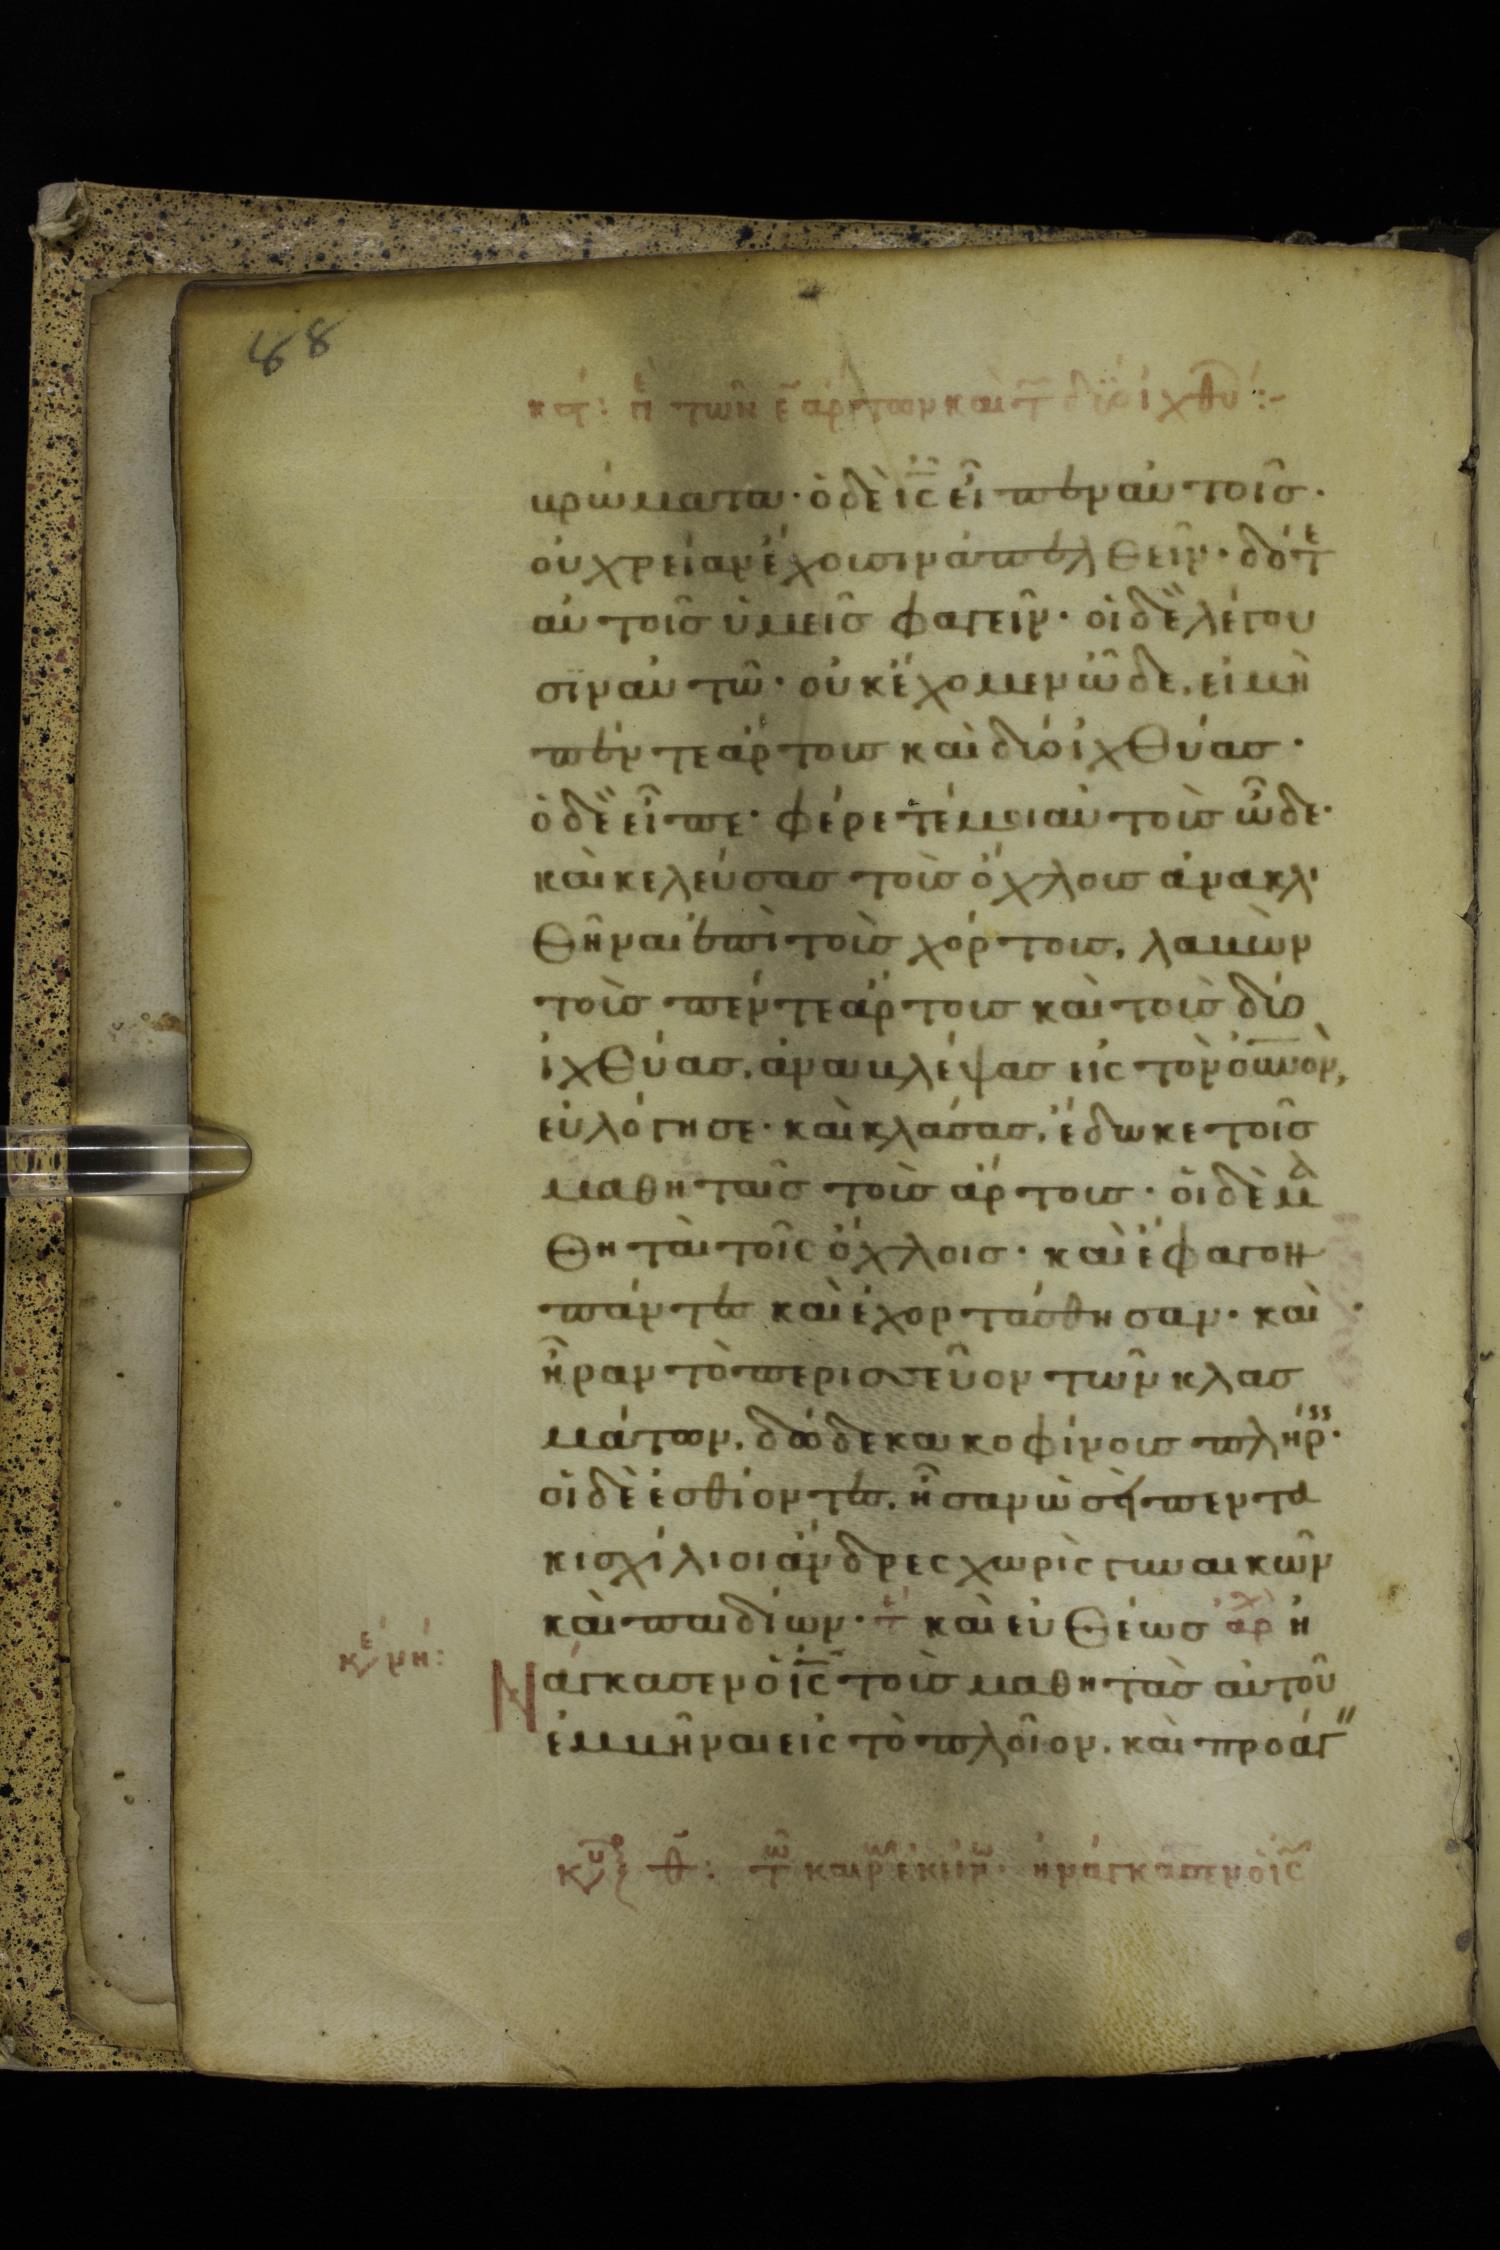 88
κεφ: π̈ των ε̄ αρτων και τ̄ δύο ϊχθύ:-
βρώματα· ὁ δὲ ι̅ς̅ εἶπεν αὐτοῖσ·
οὐ χρείαν ἔχουσιν ἀπελθεῖν· δότε
αὐτοῖσ ὑμεῖσ φαγεῖν· οἱ δὲ λέγου
σϊν αὐτῶ· οὐκ ἔχομεν ὧδε, εἰ μὴ
πέντε ἄρτουσ καὶ δύο ἰχθύασ·
ὁ δὲ εἶπε· φέρετέ μοι αὐτοὺσ ὧδε·
καὶ κελεύσασ τοὺσ ὄχλουσ ἀνακλι
θῆναι ἐπὶ τοὺσ χόρτουσ, λαβὼν
τοὺσ πέντε ἄρτουσ καὶ τοὺσ δύο
ἰχθύασ, ἀναβλέψασ εἰς τὸν ο̅υ̅νον,
εὐλόγησε· καὶ κλάσασ, ἔδωκε τοῖσ
μαθηταῖσ τοὺσ ἄρτουσ· οἱ δὲ μα
θηταὶ τοῖς ὄχλοισ· καὶ ἔφαγον
πάντεσ καὶ ἐχορτάσθησαν· καὶ
ἦραν τὸ περισσεῦον τῶν κλασ
μάτων, δώδεκα κοφίνουσ πλήρ·
οἱ δὲ ἐσθίοντεσ, ἦσαν ὡσεὶ πεντα
κισχίλιοι ἄνδρες χωρὶς γυναικῶν
καὶ παιδίων· τέ καὶ εὐθέωσ ἀρχ ἠ
κυ ε μη:
Νάγκασεν ὁ ι̅ς̅ τοὺσ μαθητὰσ αὐτοῦ
ἐμβῆναι εἰς τὸ πλοῖον, καὶ προάγ
κυ θ: τῶ καιρῶ ἐκείνω· ἠνάγκασεν ὁ ι̅ς̅